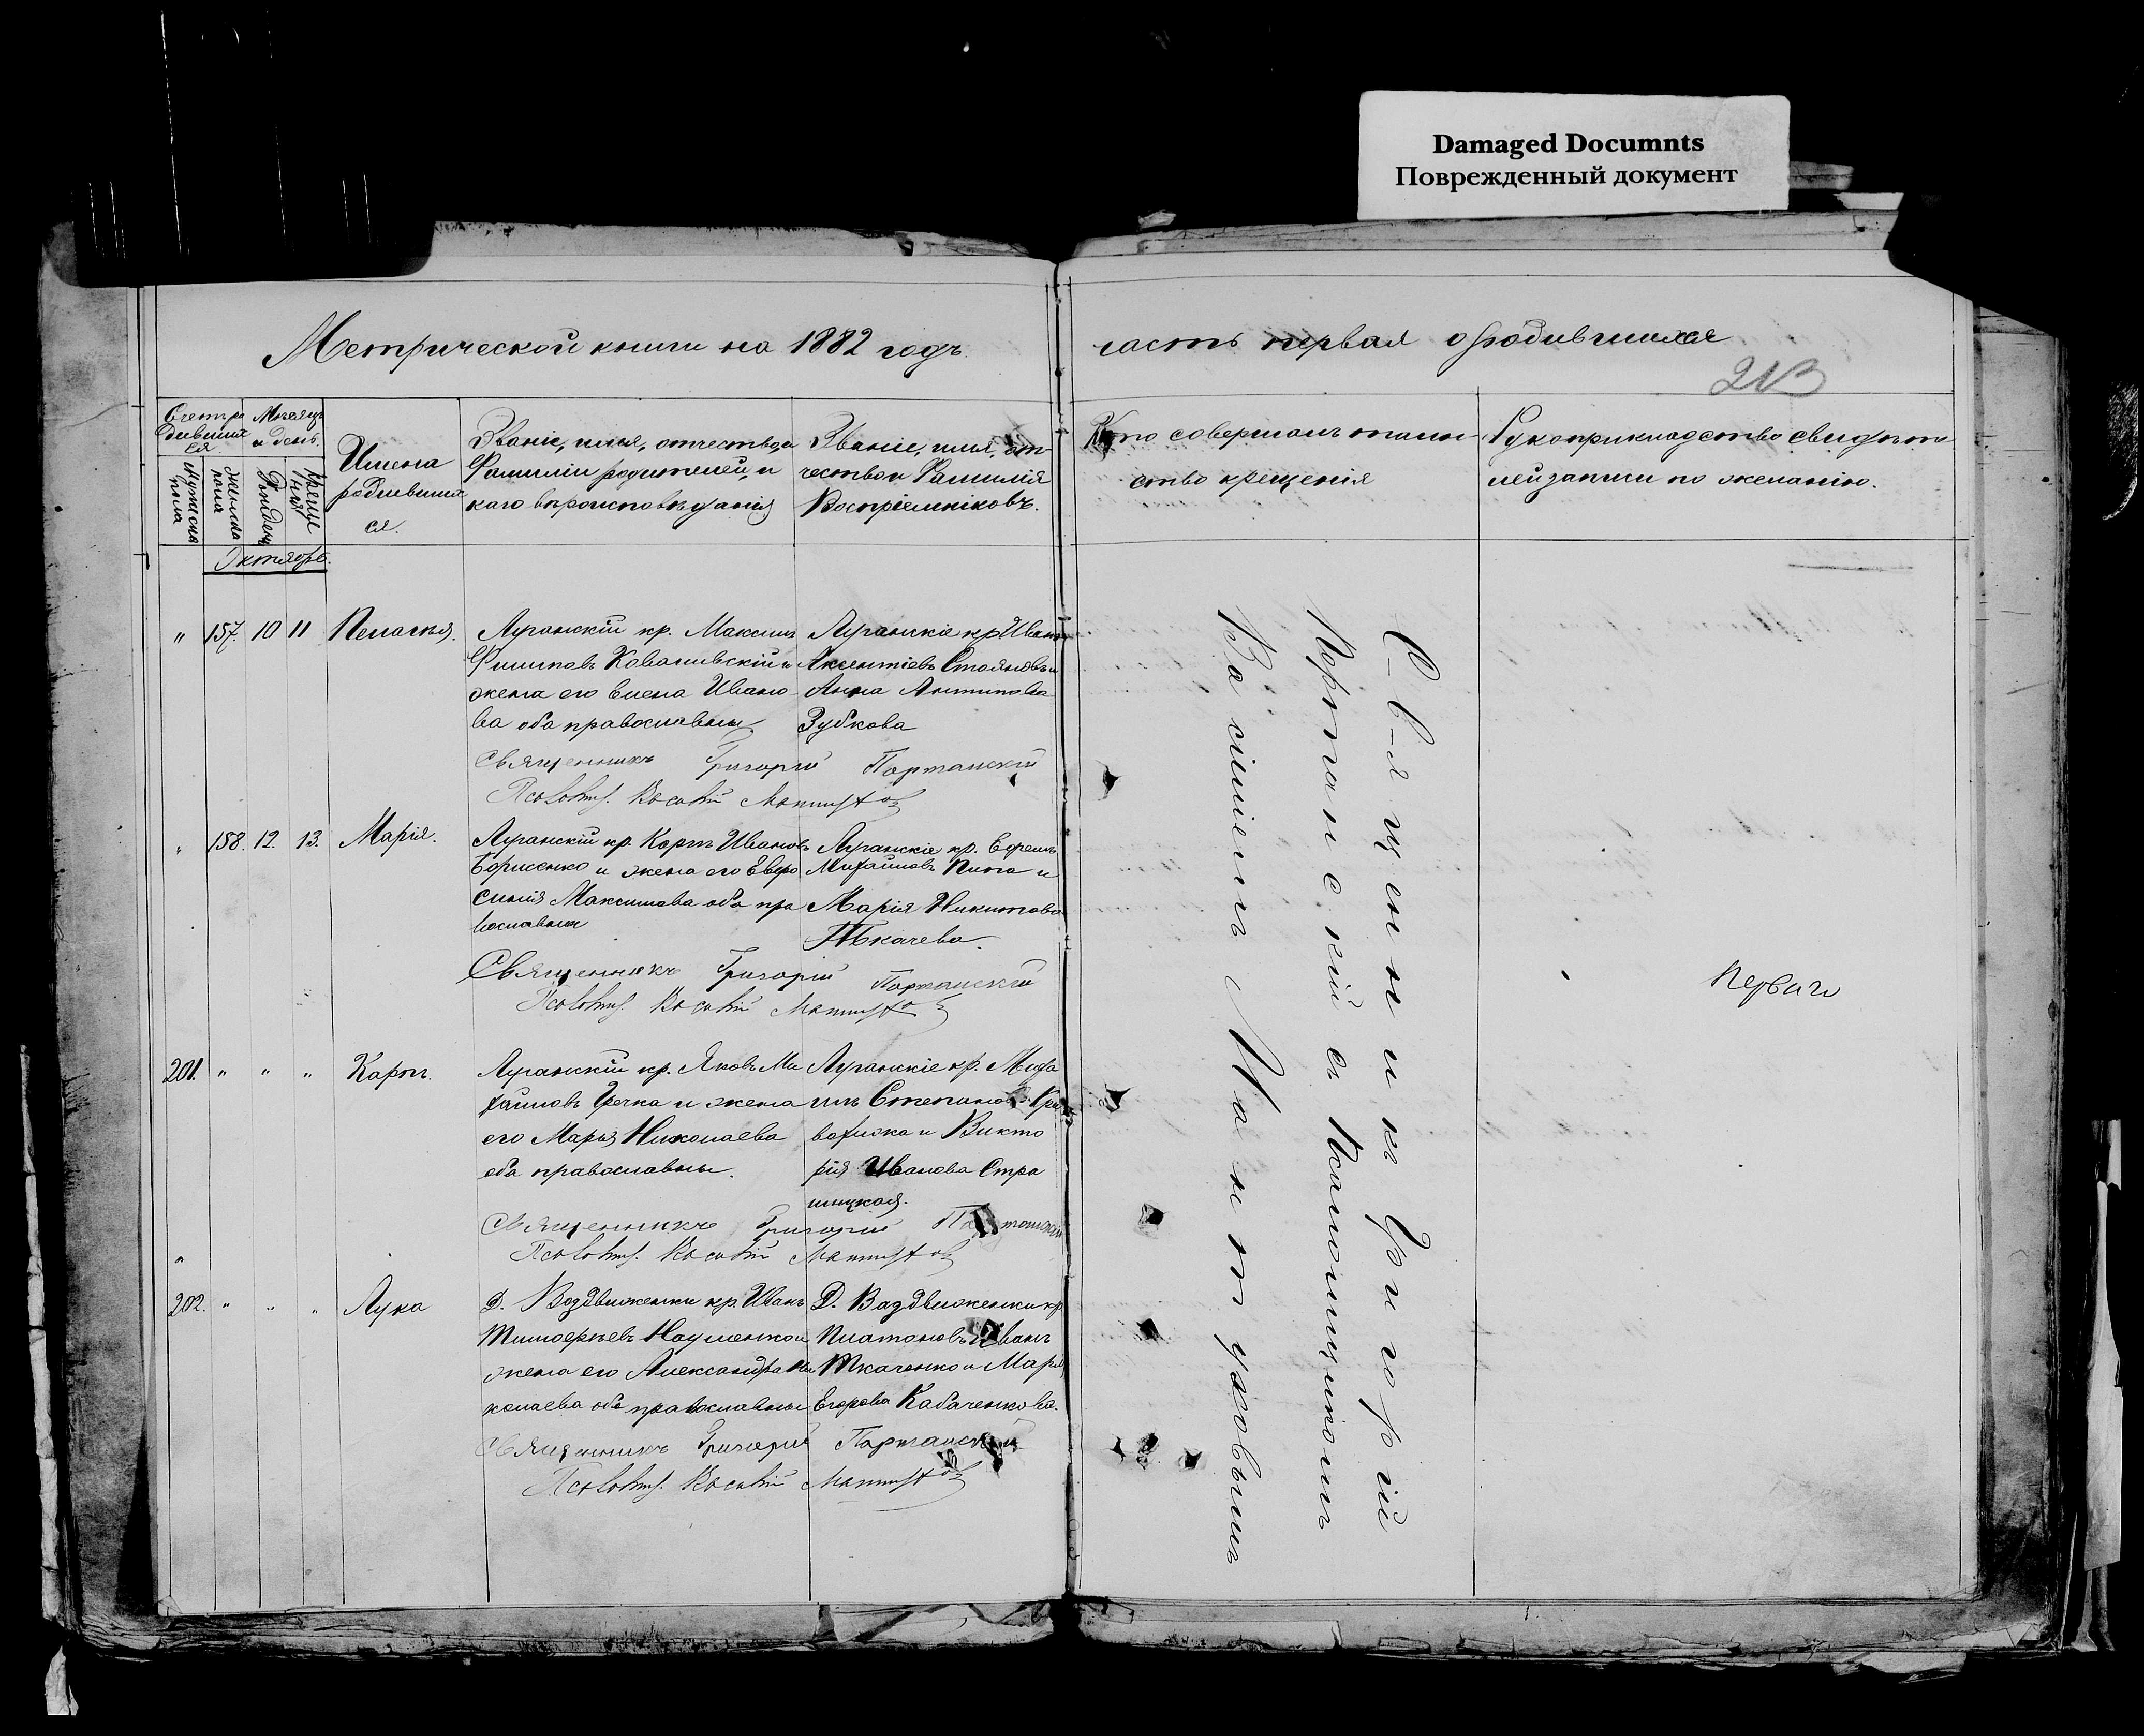 Damaged Documnts
Поврежденный документ
Метрической книги на 1882 годъ
часть первая о родившихся
213
Счетъ ро
дивших
ся
Мѣсяцъ
и день.
Имена
родивших
ся.
Званіе, имя, отчество, и
Фамиліи родителей, и
каго вѣроисповѣданія
Званіе, имя, от-
чество и Фамилія
Воспріемниковъ.
Кто совершалъ таин
ство крещенія
Рукоприкладство свидѣте
лей записи по желанію.
Мужеска
пола
женска
пола
Рожденія
Креще
нія
Октябрь.
" 157. 10 11 Пелагія.
Луганскій кр. Максимъ
Филиповъ Коваливскій и
жена его Елена Ивано
ва оба православны
Луганскіе кр Иванъ
Аксентіевъ Стояновъ и
Анна Антипова
Зубкова
Священникъ Григорій Портанскій
Псаломщ.
" 158. 12. 13. Марія.
Луганскій кр. Карпъ Ивановъ
Борисенко и жена его Евро
синія Максимова оба пра
вославны
Луганскіе кр. Ефремъ
Михайловъ Пипа и
Марія Никитова
Ткачева.
Священникъ Григорій Портанскій
Псаломщ.
201. " " " Карпъ.
Луганскій кр. Яковъ Ми
хайловъ Гречка и жена
его Марья Николаева
оба православны.
Луганскіе кр. Миха
илъ Степановъ Кри
вохижа и Викто
рія Иванова Стра
шицкая.
Священникъ Григорій Портанскій
Псаломщ.
202. " " " Лука
Д. Воздвиженки кр. Иванъ
Тимоѳеевъ Науменко и
жена его Александра Ни
колаева оба православны
Д. Ваздвиженки кр
Платоновъ Иванъ
Ткаченко и Марія
Егорова Кабаченкова.
Священникъ Григорій Портанскій
Псаломщ.
С-в-я щ е н н и к ъ Г р и г о р і й
Портанскій съ Псаломщикомъ
Василіемъ
Перваго